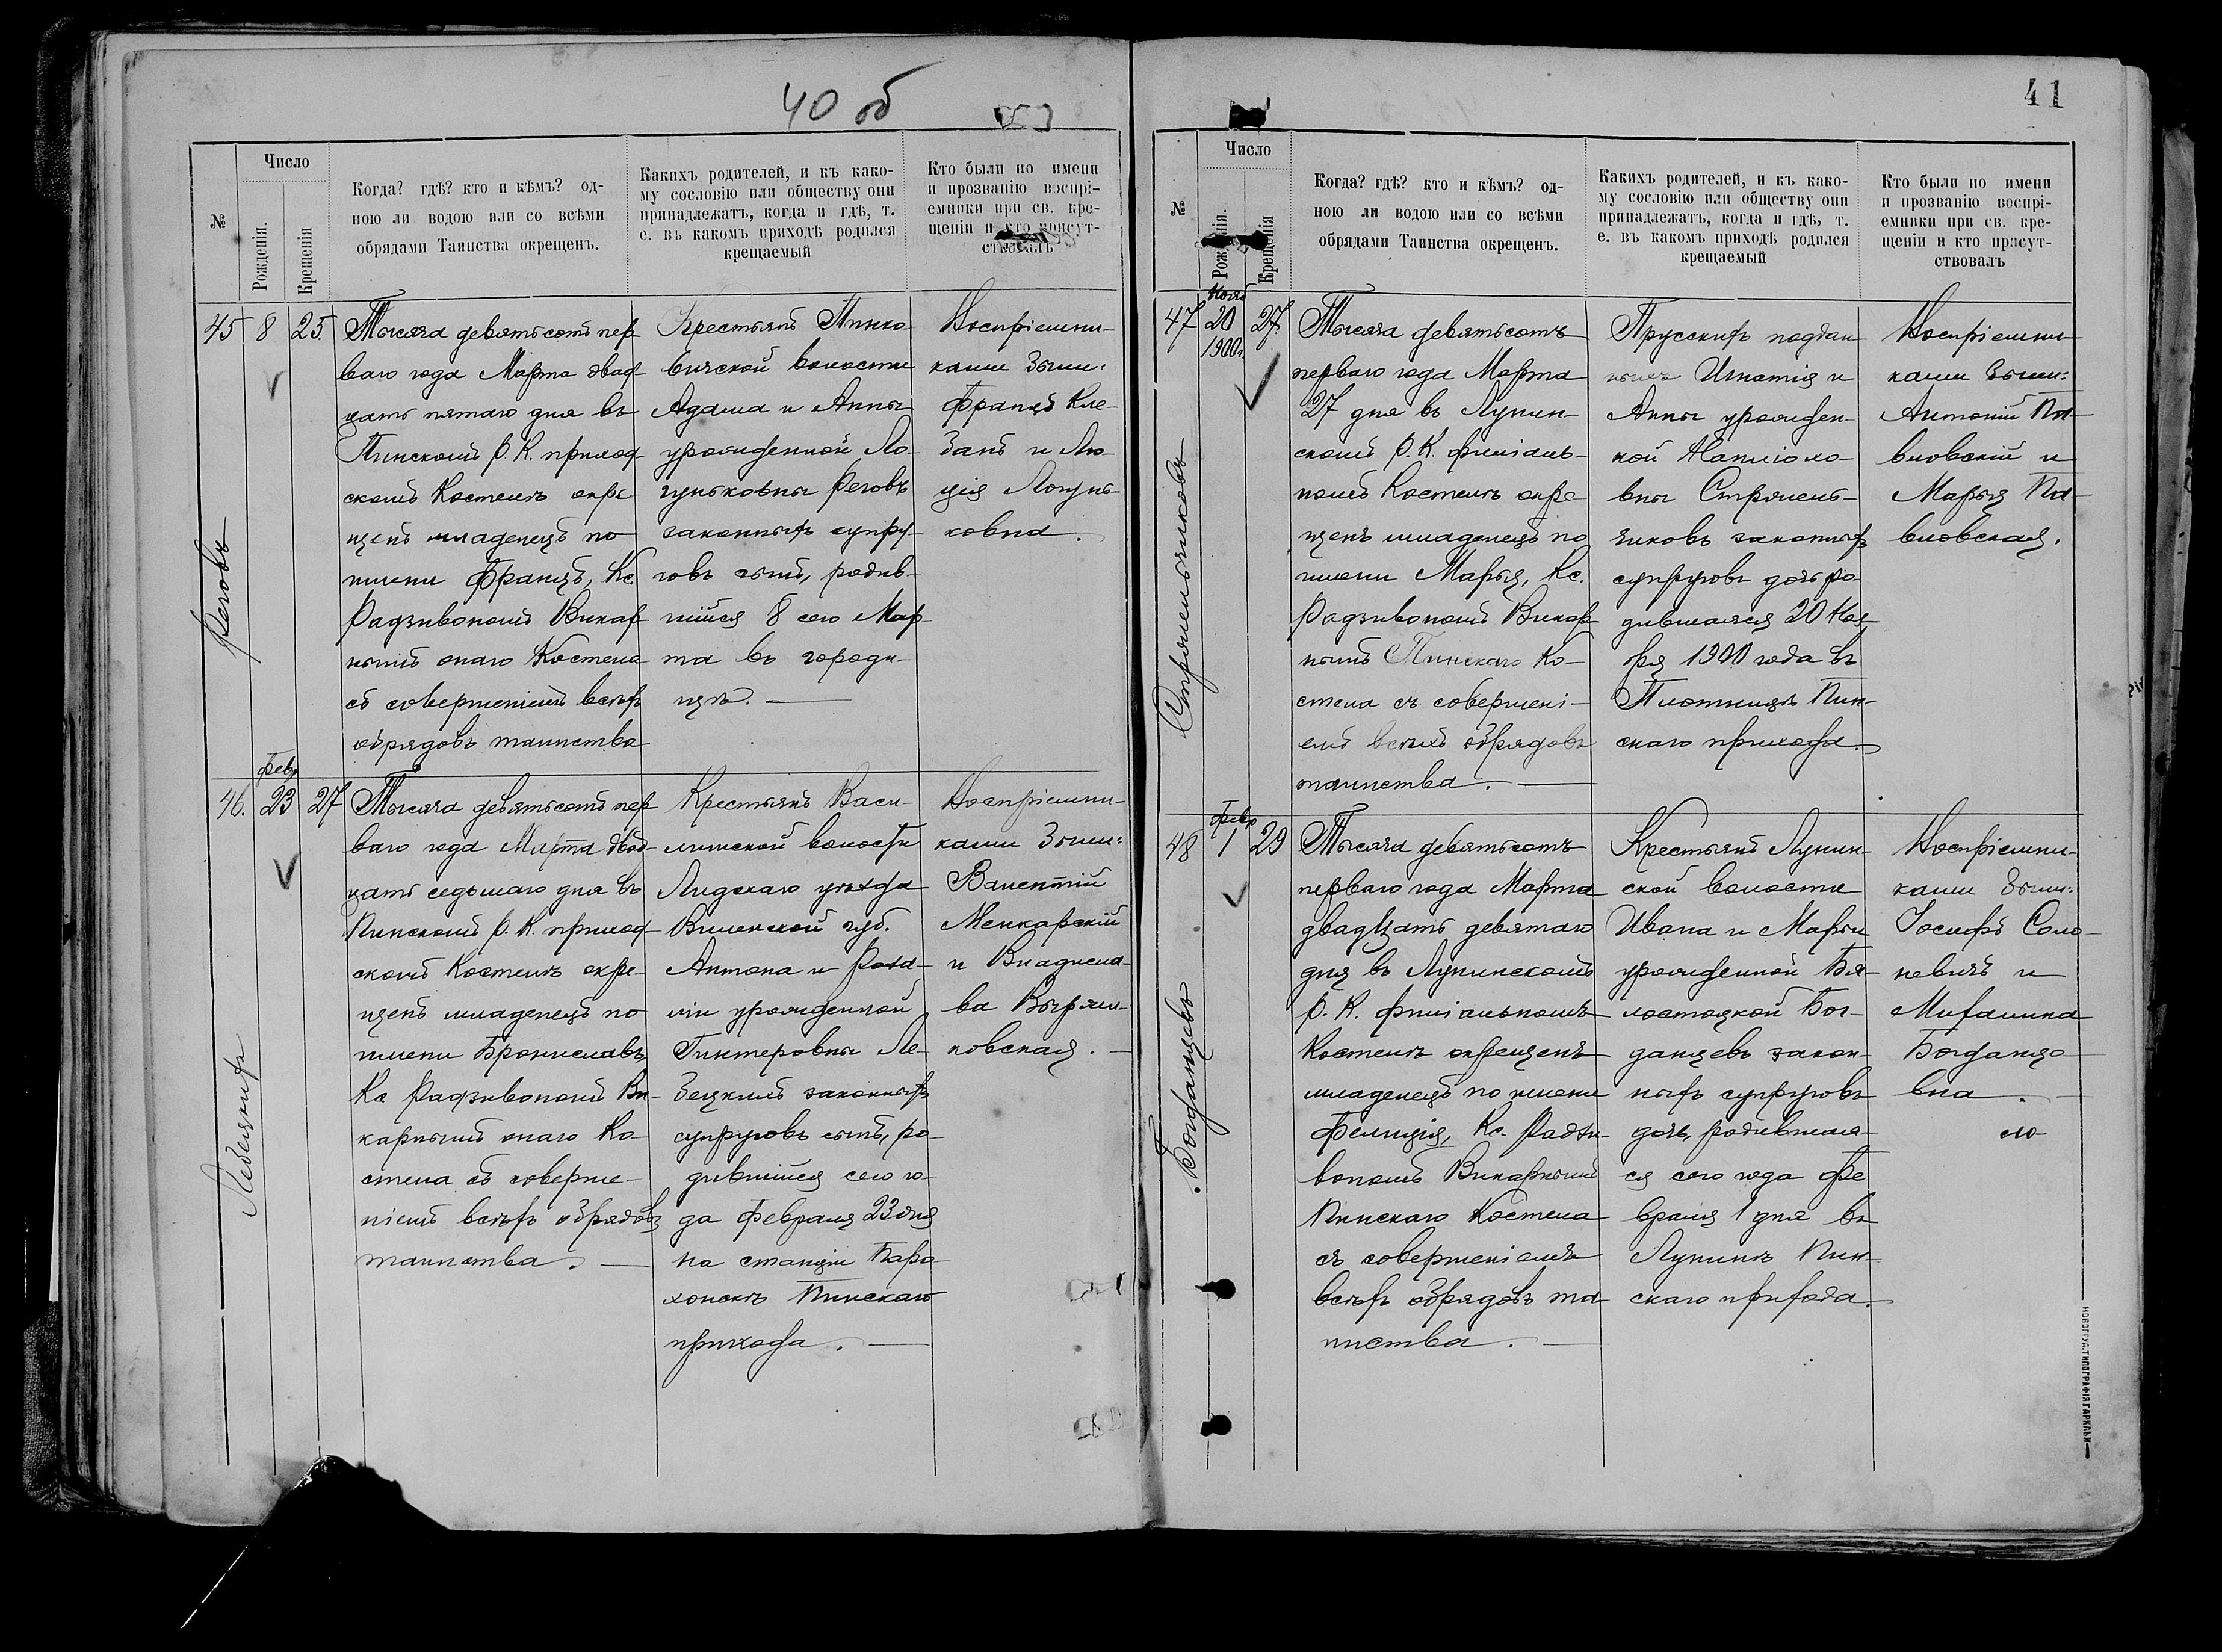 40 об
№
Число
Рожденія.
Крещенія
Когда? гдѣ? кто и кѣмъ? од-
ною ли водою или со всѣми
обрядами Таинства окрещенъ.
Какихъ родителей, и къ како-
му сословію или обществу они
принадлежатъ, когда и гдѣ, т.
е. въ какомъ приходѣ родился
крещаемый
Кто были по имени
и прозванію воспрі-
емники при св. кре-
щеніи и кто присут-
ствовалъ
45 8 25.
Реговъ
Тысяча девятьсотъ пер-
ваго года Марта двад-
цать пятаго дня въ
Пинскомъ Р. К. приход-
скомъ Костелѣ окре-
щенъ младенецъ по
имени Францъ, Кс.
Радзивономъ Викар-
нымъ онаго Костела
съ совершеніемъ всѣхъ
обрядовъ таинства
Крестьянъ Пинко-
вичской волости
Адама и Анны
урожденной Ло-
гуньковны Реговъ
законныхъ супру-
говъ сынъ, родив-
шійся 8 сего Мар-
та въ городи-
щѣ.
Воспріемни-
ками были:
Францъ Кле-
занъ и Лю-
ція Логунь-
ковна.
46. Февр 23 27
Тысяча девятьсотъ пер-
ваго года Марта двад-
цать седьмаго дня въ
Пинскомъ Р. К. приход-
скомъ Костелѣ окре-
щенъ младенецъ по
имени Брониславъ
Кс Радзивономъ Ви-
карнымъ онаго Ко-
стела съ соверше-
ніемъ всѣхъ обрядовъ
таинства.
Крестьянъ Васи-
лишской волости
Лидскаго уѣзда
Виленской губ.
Антона и Роза-
ліи урожденной
Гинтеровны Ле-
бецкихъ законныхъ
супруговъ сынъ, ро-
дившійся сего го-
да Февраля 23 дня
на станціи Паро-
хонскъ Пинскаго
прихода.
Воспріемни-
ками были:
Валентій
Менкарскій
и Владисла-
ва
новская.
41
№
Число
Рожденія.
Крещенія
Когда? гдѣ? кто и кѣмъ? од-
ною ли водою или со всѣми
обрядами Таинства окрещенъ.
Какихъ родителей, и къ како-
му сословію или обществу они
принадлежатъ, когда и гдѣ, т.
е. въ какомъ приходѣ родился
крещаемый
Кто были по имени
и прозванію воспрі-
емники при св. кре-
щеніи и кто присут-
ствовалъ
47 Нояб 20 1900г. 27.
Стрмельчиковъ
Тысяча девятьсотъ
перваго года Марта
27 дня въ Лунин-
скомъ Р. К. филіаль-
номъ Костелѣ окре-
щенъ младенецъ по
имени Марья, Кс.
Радзивономъ Викар-
нымъ Пинскаго Ко-
стела съ совершені-
емъ всѣхъ обрядовъ
таинства.
Прусскихъ поддан-
ныхъ Игнатія и
Анны урожден-
ной
вны
законныхъ
супруговъ дочь ро-
дившаяся 20 Ноя-
бря 1900 года въ
Плотницѣ Пин-
скаго прихода.
Воспріемни-
ками были:
Антоній Па-
вловскій и
Марья Па-
вловская.
48 Февр 1 29
Богданцевъ
Тысяча девятьсотъ
перваго года Марта
двадцать девятаго
дня въ Лунинскомъ
Р. К. филіальномъ
Костелѣ окрещенъ
младенецъ по имени
Фелиція, Кс. Радзи-
вономъ Викарнымъ
Пинскаго Костела
съ совершеніемъ
всѣхъ обрядовъ та-
инства.
Крестьянъ Лунин-
ской волости
Ивана и Марьи
урожденной Бя-
лостоцкой Бог-
данцевъ закон-
ныхъ супруговъ
дочь, родившая-
ся сего года Фе-
враля 1 дня въ
Лунинѣ Пин-
скаго прихода.
Воспріемни-
ками были:
Іосифъ Соло-
невичъ и
Михалина
Богданцо-
вна.